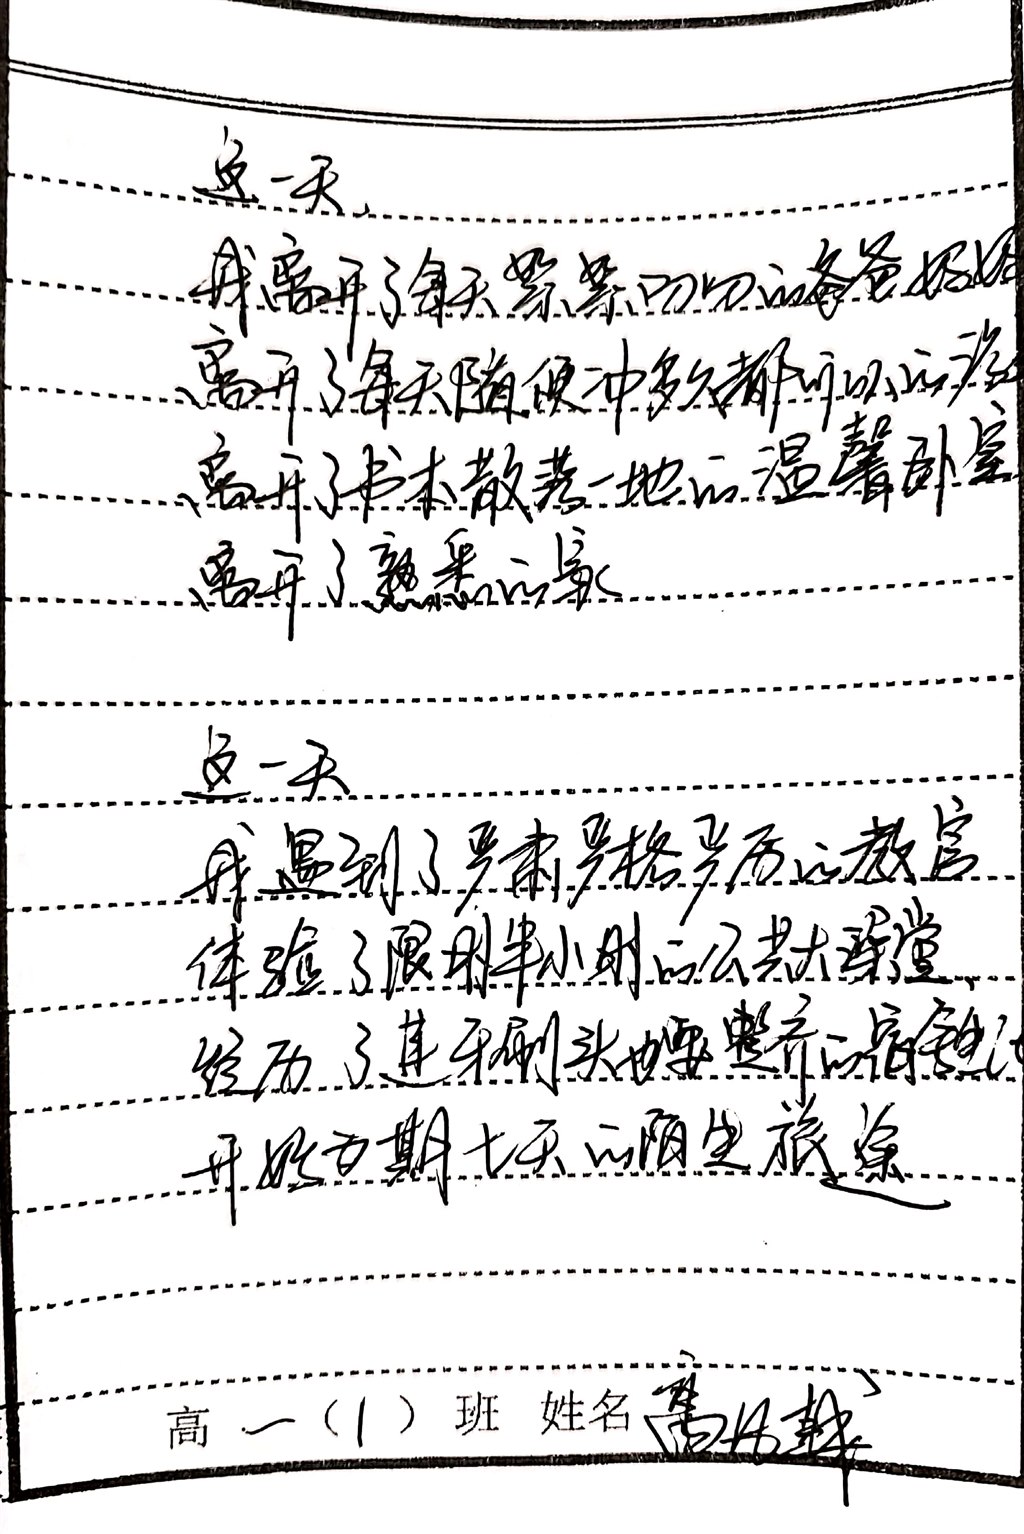 这一天，
我离开了每天絮絮叨叨的爸爸妈妈
离开了每天随便冲多久都可以的
离开了书本散落一地的温馨卧室
离开了熟悉的家
这一天
我遇到了严肃严格严厉的教官
体验了限时半小时的公共大澡堂
经历了连牙刷头也要整齐的宿舍
开始为期七天的陌生旅途
高一（1）班 姓名高